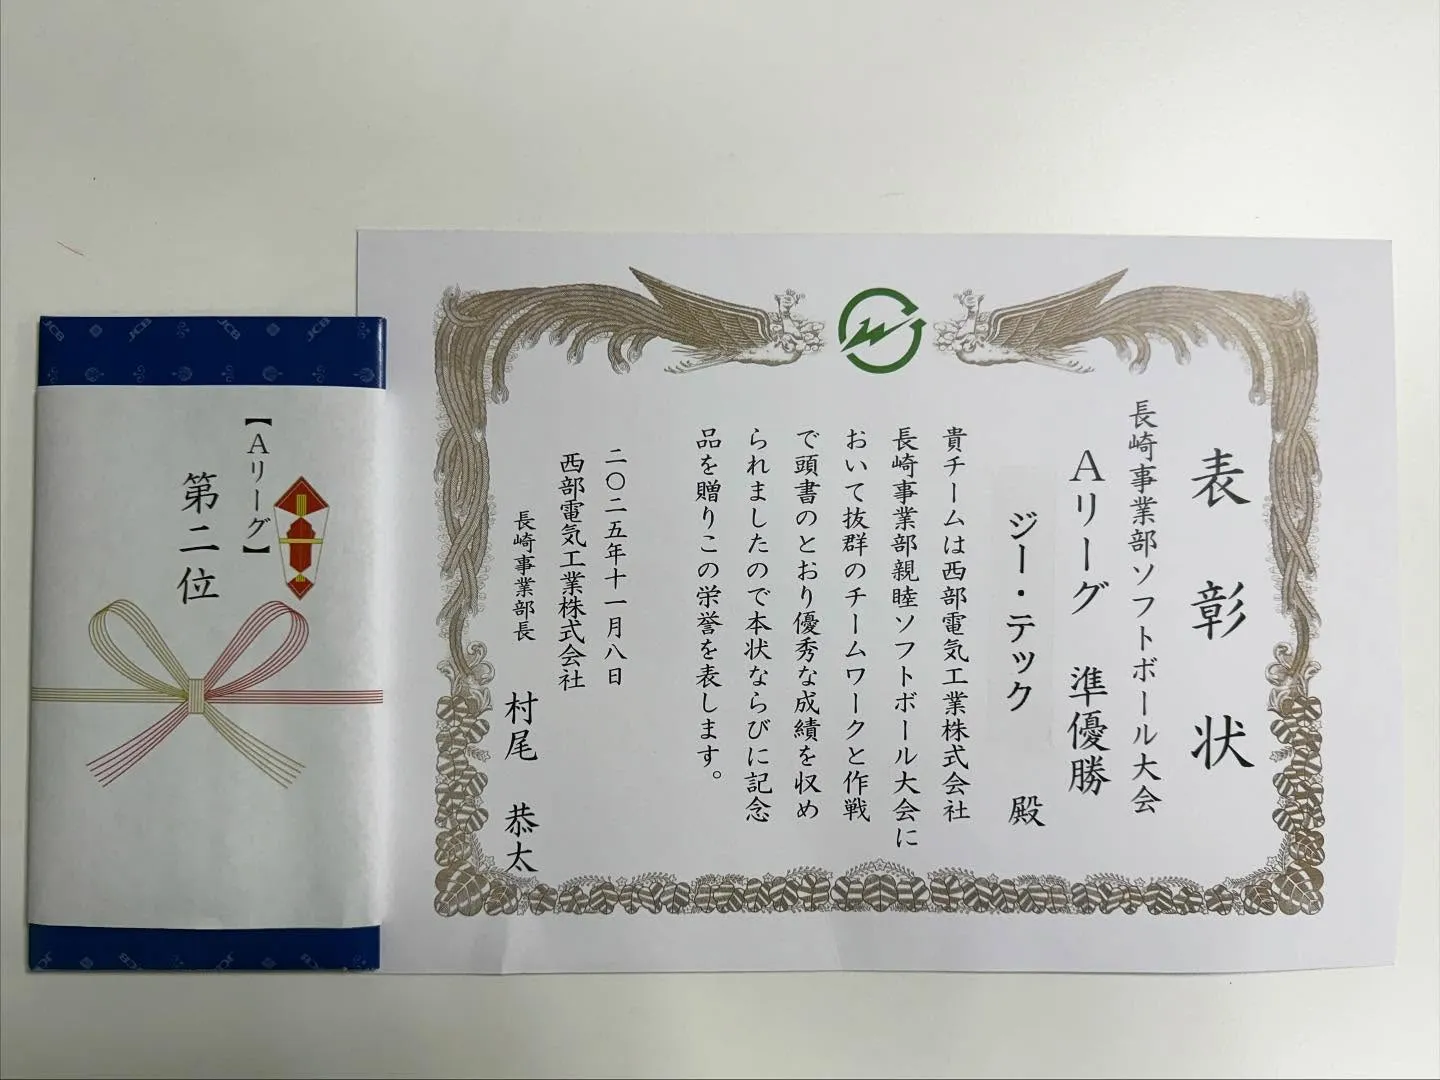 表彰状
長崎事業部ソフトボール大会
Aリーグ 準優勝
ジー・テック 殿
貴チームは西部電気工業株式会社
長崎事業部親睦ソフトボール大会に
おいて抜群のチームワークと作戦
で頭書のとおり優秀な成績を収め
られましたので本状ならびに記念
品を贈りこの栄誉を表します。
二〇二五年十一月八日
西部電気工業株式会社
長崎事業部長 村尾 恭太
【Aリーグ】
第二位
JCB
JCB
JCB
JCB
JCB
JCB